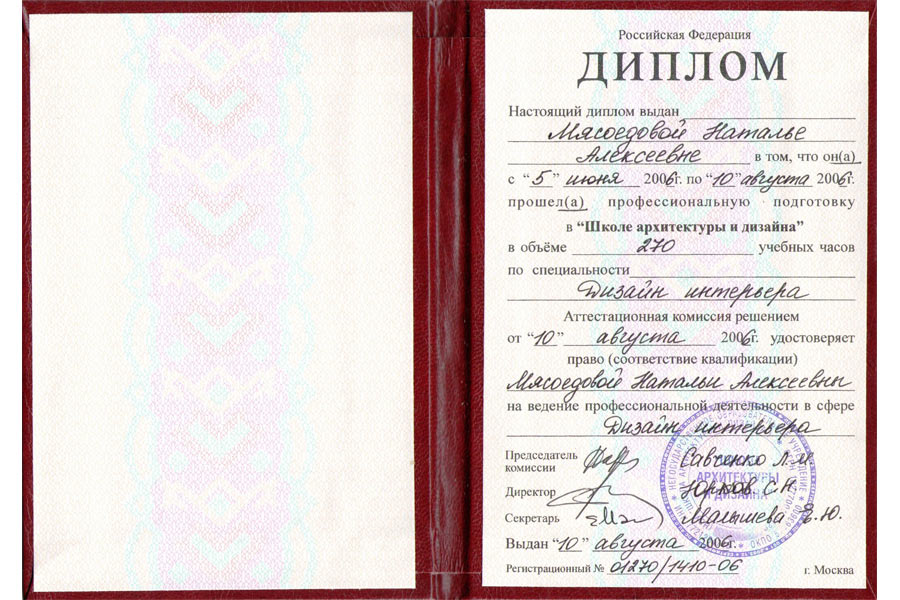 Российская Федерация
ДИПЛОМ
Настоящий диплом выдан
Мясоедовой Наталье
Алексеевне в том, что он(а)
с “5” июня 2006г. по “10” августа 2006г.
прошел(а) профессиональную подготовку
в “Школе архитектуры и дизайна”
в объёме 270 учебных часов
по специальности
Дизайн интерьера
Аттестационная комиссия решением
от “10” августа 2006г. удостоверяет
право (соответствие квалификации)
Мясоедовой Натальи Алексеевны
на ведение профессиональной деятельности в сфере
Дизайн интерьера
Председатель комиссии Савченко Л.М.
Директор Юрков С.Н.
Секретарь Малышева Е.Ю.
Выдан “10” августа 2006г.
Регистрационный № 01270/1410-06 г. Москва
АРХИТЕКТУРЫ
И ДИЗАЙНА